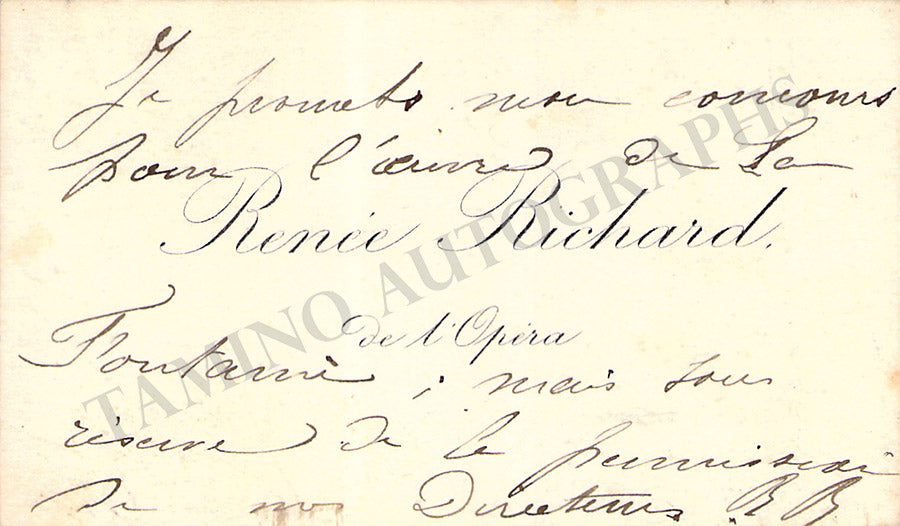 Je promets mon concours
pour l'œuvre de La
Renée Richard.
de l'Opéra
Fontaine ; mais sous
réserve de la permission
de nos Directeurs R R
TAMINO AUTOGRAPHS